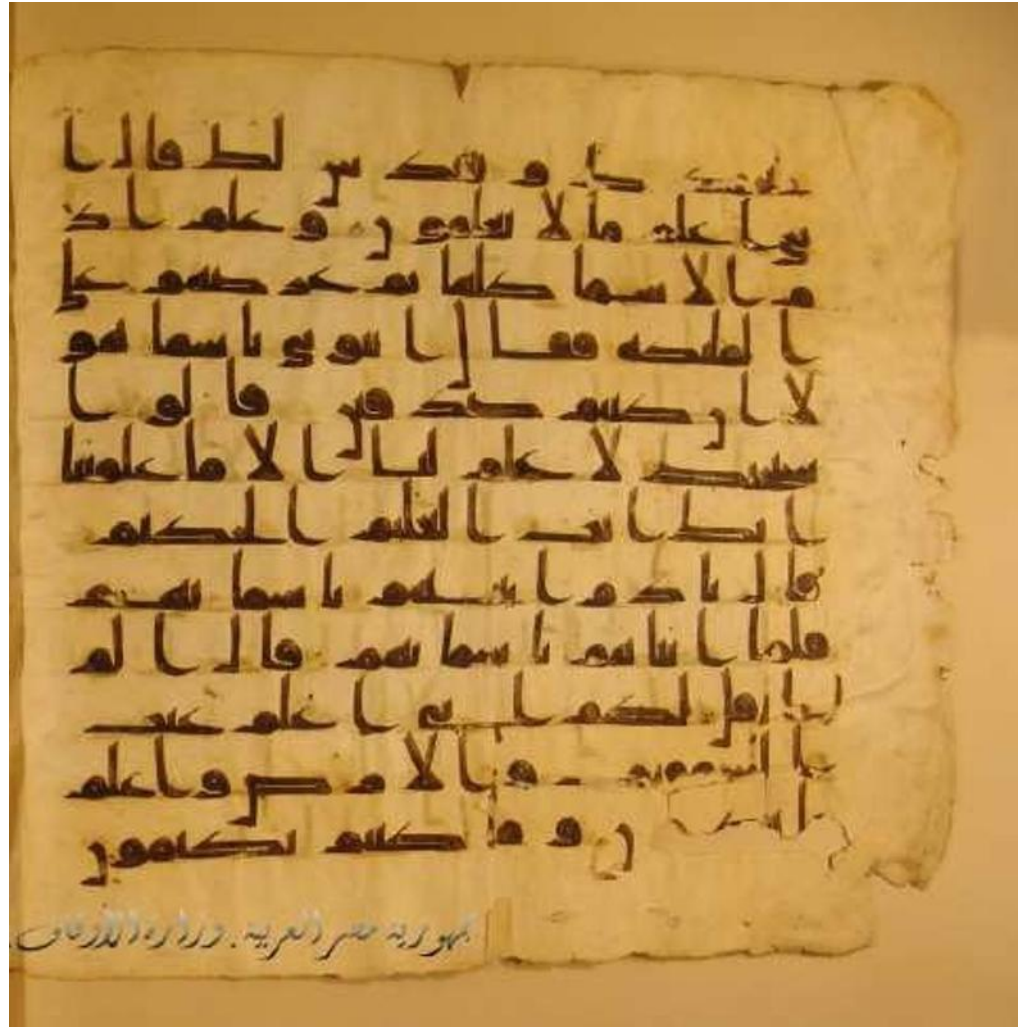 بحمدك و نقدس لك قال ا
ني اعلم ما لا تعلمون و علم اد
م الاسما كلها ثم عرضهم علي
الملئكه فقال انبوني باسما هو
لا ان كنتم صدقين قالوا
سبحنك لا علم لنا الا ما علمتنا
انك انت العليم الحكيم
قال يادم انبهم باسمائهم
فلما انباهم باسمائهم قال الم
اقل لكم اني اعلم غيب
السموت و الارض و اعلم
ن و ما كنتم تكتمون
جمهورية مصر العربية . وزارة الأوقاف .